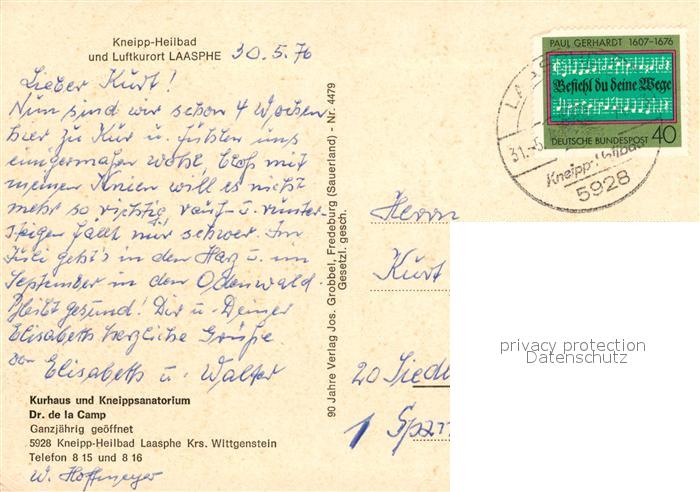 Kneipp-Heilbad
und Luftkurort LAASPHE 30.5.76
Lieber Kurt!
Nun sind wir schon 4 Wochen
hier zu Kur u. fühlen uns
einigermaßen wohl, bloß mit
meinen Knien will es nicht
mehr so richtig, rauf- u. runter-
steigen fällt mir schwer. Im
Juli geht's in den Harz u. im
September in den Odenwald.
Bleibt gesund! Dir u. Deiner
Elisabeth herzliche Grüße
von Elisabeth u. Walter
Kurhaus und Kneippsanatorium
Dr. de la Camp
Ganzjährig geöffnet
5928 Kneipp-Heilbad Laasphe Krs. Wittgenstein
Telefon 8 15 und 8 16
W. Hoffmeyer
90 Jahre Verlag Jos. Grobbel, Fredeburg (Sauerland) - Nr. 4479
Gesetzl. gesch.
PAUL GERHARDT 1607-1676
Befiehl du deine Wege
DEUTSCHE BUNDESPOST 40
31.
Kneipp-Heilbad
5928
Herrn
Kurt
20 Siedl
1 Span
privacy protection
Datenschutz